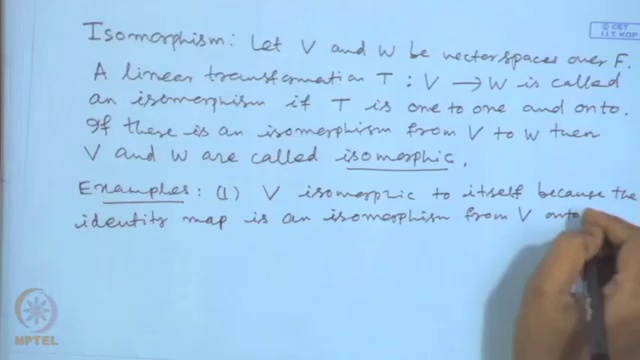 © CET
I.I.T. KGP
Isomorphism: Let V and W be vector spaces over F.
A linear transformation T : V → W is called
an isomorphism if T is one to one and onto.
If there is an isomorphism from V to W then
V and W are called isomorphic.
Examples: (1) V isomorphic to itself because the
identity map is an isomorphism from V onto
NPTEL